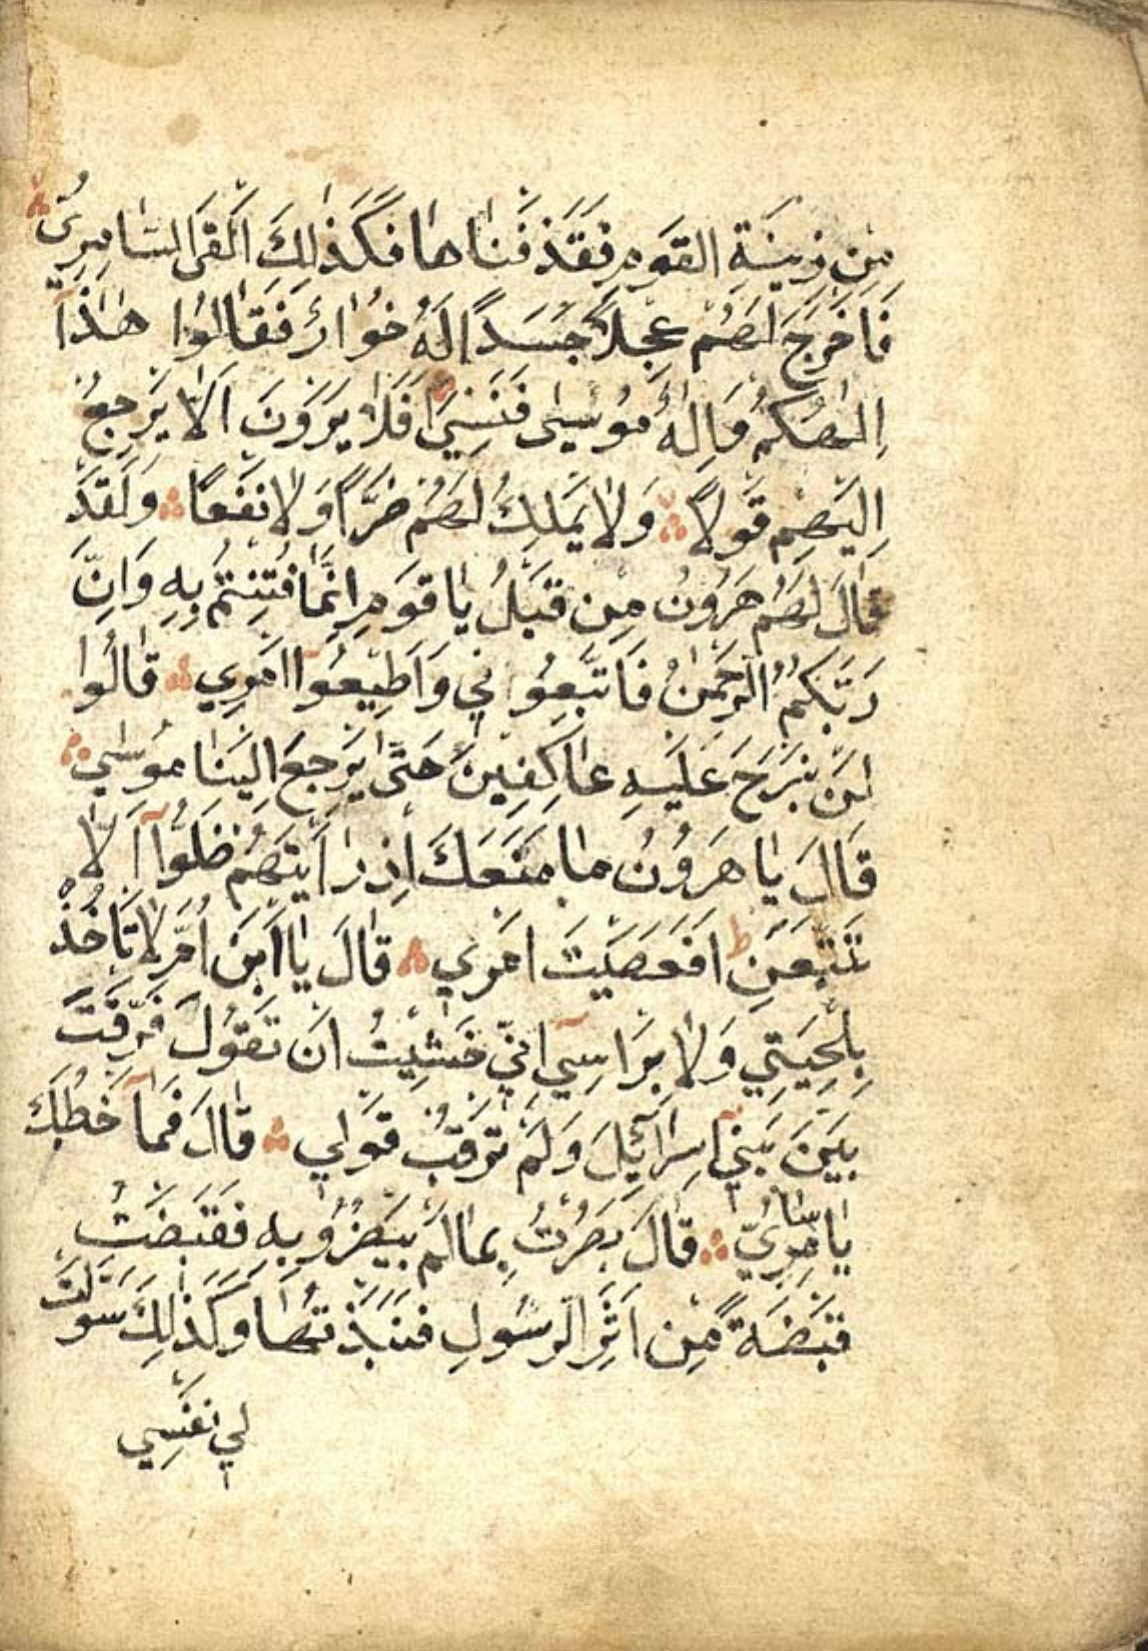 مِنْ زِينَةِ الْقَوْمِ فَقَذَفْنَاهَا فَكَذٰلِكَ اَلْقَى السَّامِرِيُّ
فَاَخْرَجَ لَهُمْ عِجْلًا جَسَدًا لَهُ خُوَارٌ فَقَالُوا هٰذَآ
اِلٰهُكُمْ وَاِلٰهُ مُوسٰى فَنَسِيَ اَفَلَا يَرَوْنَ اَلَّا يَرْجِعُ
اِلَيْهِمْ قَوْلًا وَلَا يَمْلِكُ لَهُمْ ضَرًّا وَلَا نَفْعًا وَلَقَدْ
قَالَ لَهُمْ هَرُونُ مِنْ قَبْلُ يَا قَوْمِ اِنَّمَا فُتِنْتُمْ بِهِ وَاِنَّ
رَبَّكُمُ الرَّحْمٰنُ فَاتَّبِعُونِي وَاَطِيعُوآ اَمْرِي قَالُوا
لَنْ نَبْرَحَ عَلَيْهِ عَاكِفِينَ حَتّٰى يَرْجِعَ اِلَيْنَا مُوسٰي
قَالَ يَا هَرُونُ مَا مَنَعَكَ اِذْ رَاَيْتَهُمْ ضَلُّوآ اَلَّا
تَتَّبِعَنِ ط اَفَعَصَيْتَ اَمْرِي قَالَ يَا ابْنَ اُمَّ لَا تَاْخُذْ
بِلِحْيَتِي وَلَا بِرَاْسِي اِنِّي خَشِيتُ اَنْ تَقُولَ فَرَّقْتَ
بَيْنَ بَنِيٓ اِسْرَآئِلَ وَلَمْ تَرْقُبْ قَوْلِي قَالَ فَمَا خَطْبُكَ
يَا سَامِرِيُّ قَالَ بَصُرْتُ بِمَا لَمْ يَبْصُرُو بِهِ فَقَبَضْتُ
قَبْضَةً مِنْ اَثَرِ الرَّسُولِ فَنَبَذْتُهَا وَكَذٰلِكَ سَوَّلَتْ
لِي نَفْسِي